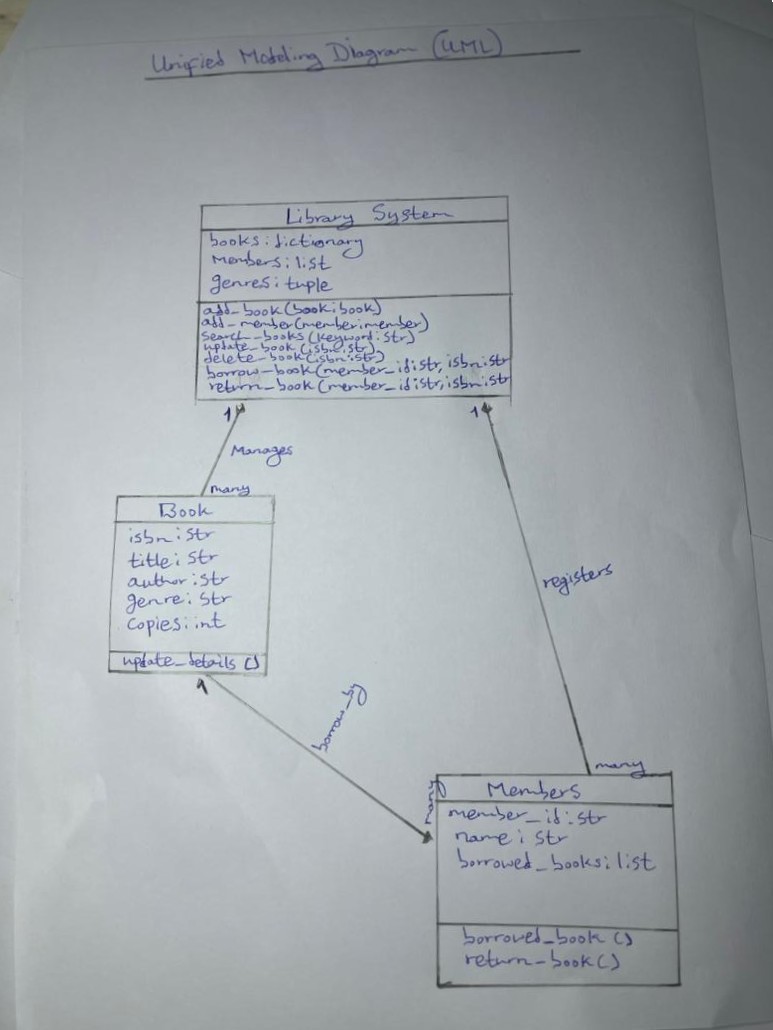 Unified Modeling Diagram (UML)
Library System
books: dictionary
Members: list
genres: tuple
add_book(book:book)
add_member(member:member)
search_books(keyword:str)
update_book(isbn:str)
delete_book(isbn:str)
borrow_book(member_id:str, isbn:str
return_book(member_id:str, isbn:str
1
1
Manages
many
Book
isbn: str
title: str
author: str
genre: str
copies: int
update_details()
registers
1
borrow_by
many
many
Members
member_id: str
name: str
borrowed_books: list
borrowed_book()
return_book()